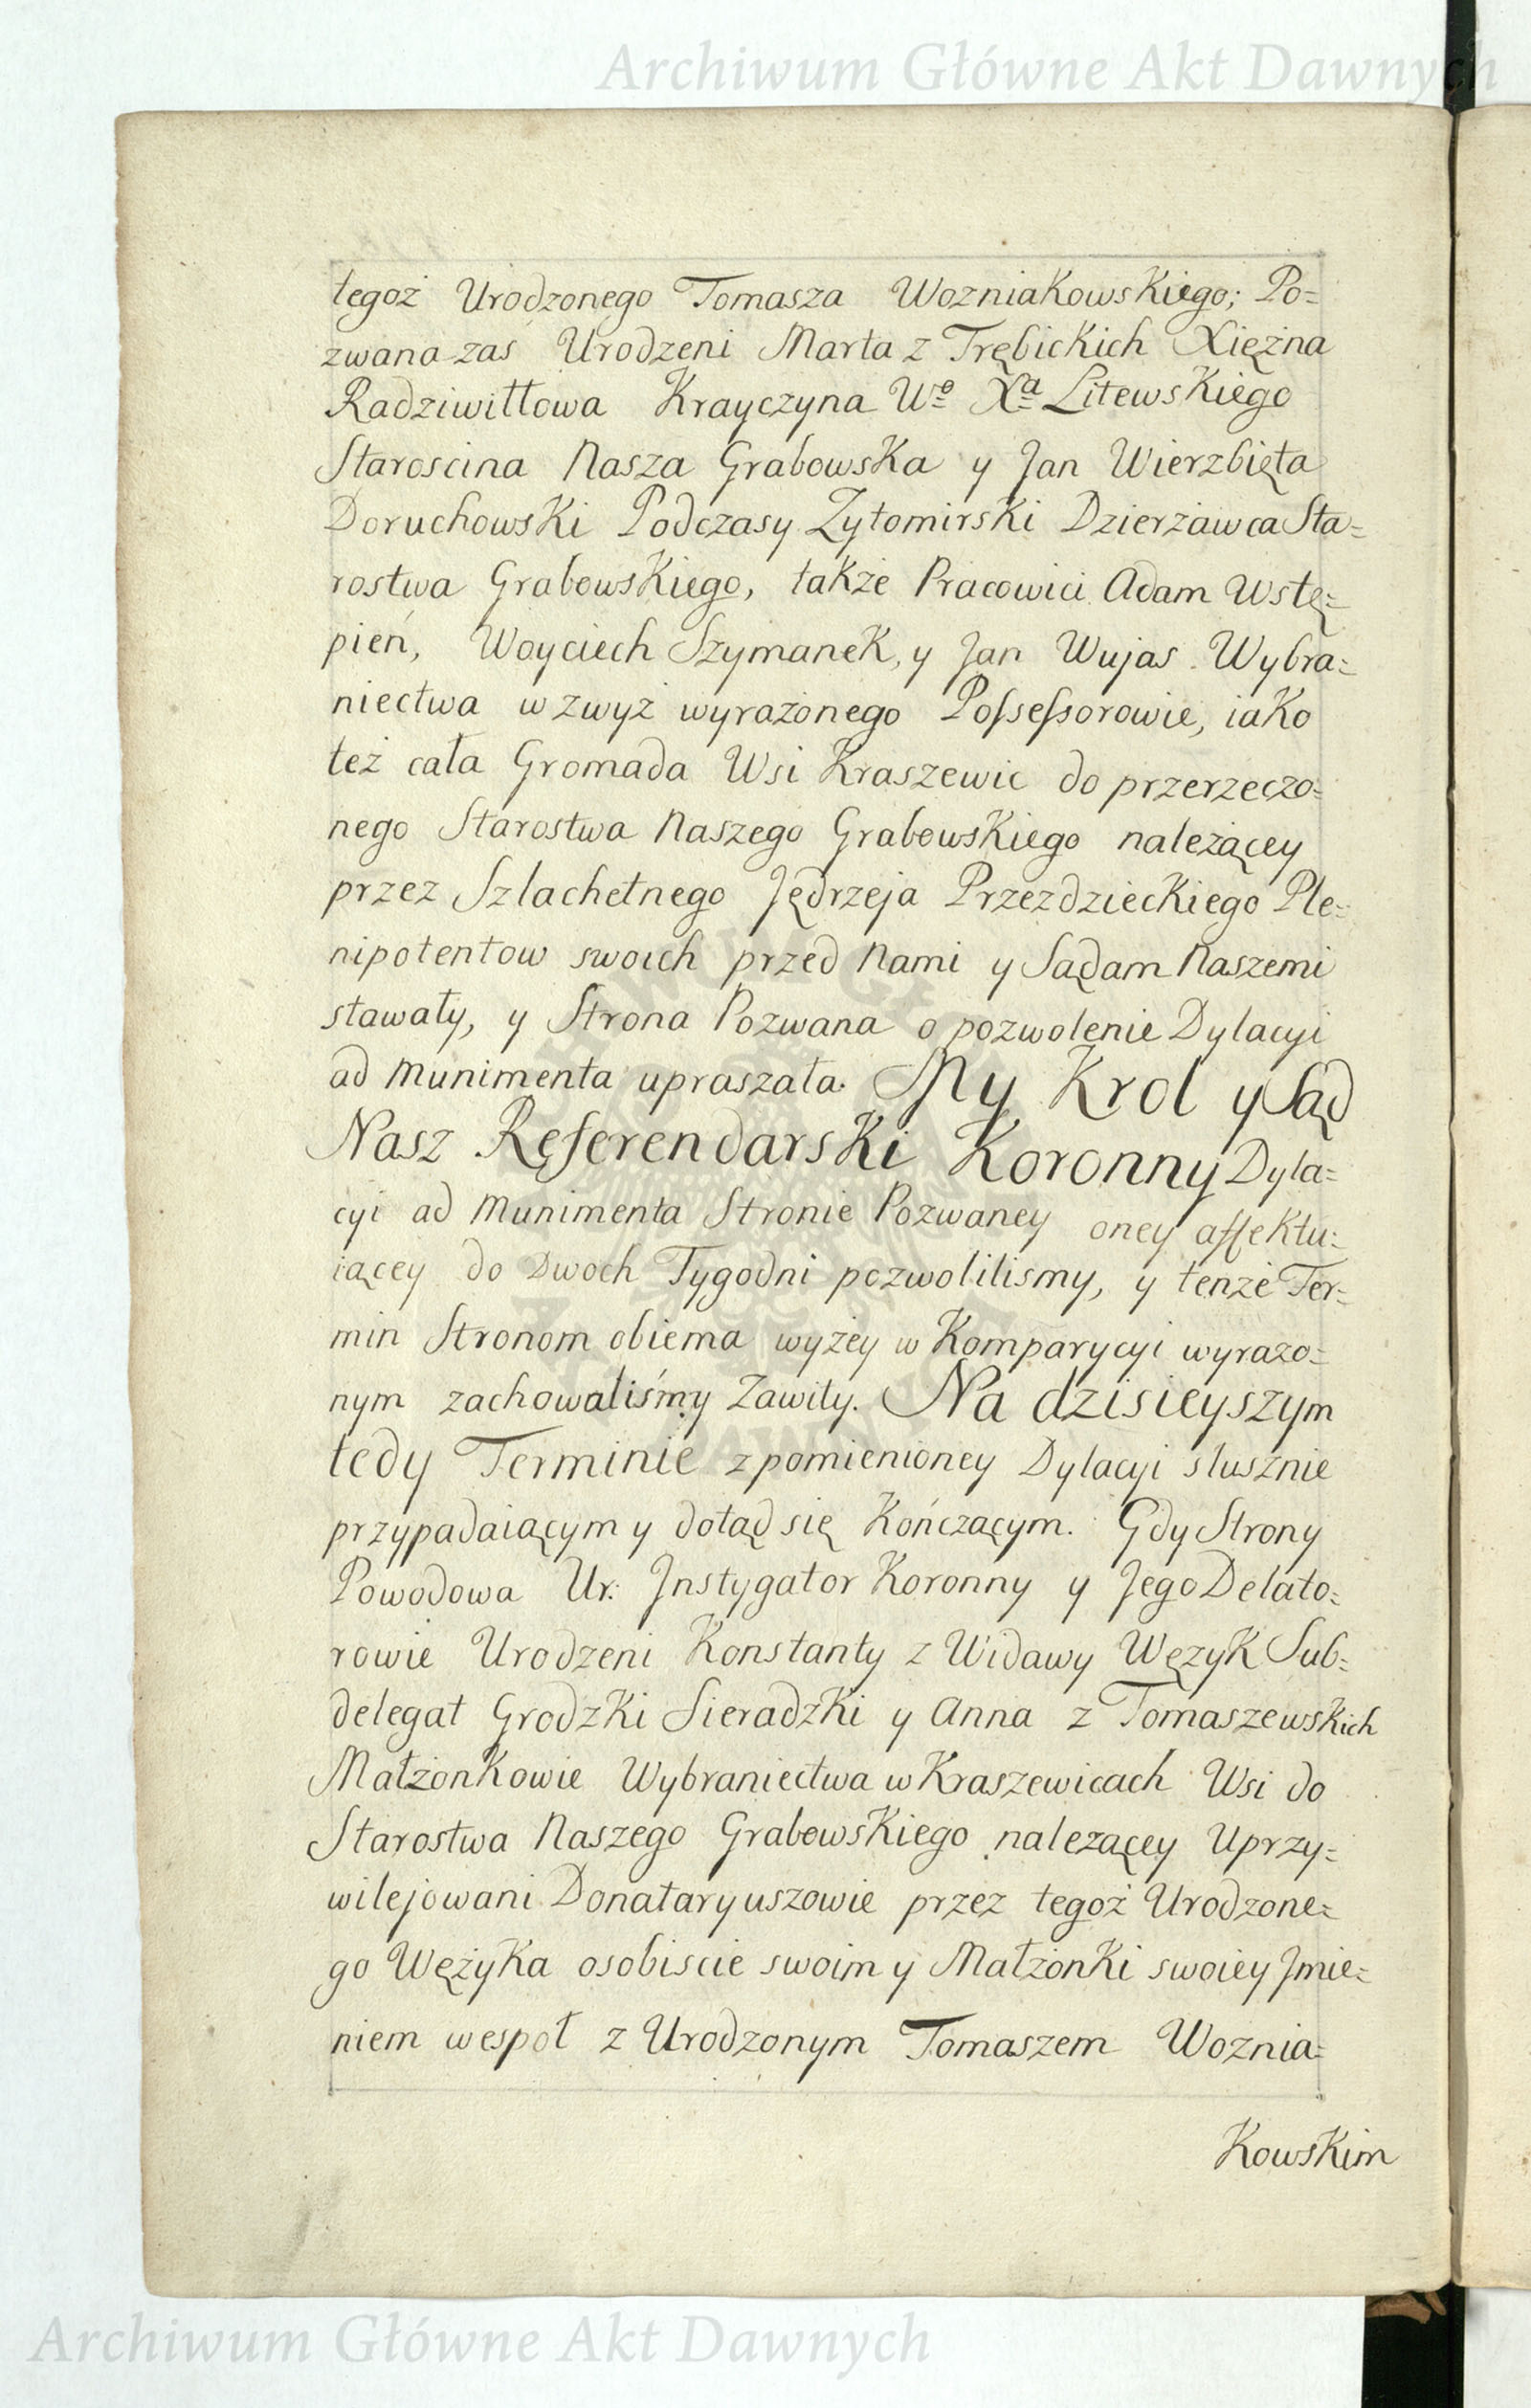 Archiwum Główne Akt Dawnych
tegoż Urodzonego Tomasza Wozniakowskiego; Po=
zwana zaś Urodzeni Marta z Trębickich Xiężna
Radziwiłłowa Krayczyna Wº Xª Litewskiego
Staroscina Nasza Grabowska y Jan Wierzbięta
Doruchowski Podczasy Zytomirski Dzierżawca Sta=
rostwa Grabowskiego, także Pracowici Adam Wstę=
pień, Woyciech Szymanek, y Jan Wujas Wybra=
niectwa wzwyż wyrażonego Possessorowie, iako
też cała Gromada Wsi Kraszewic do przerzeczo=
nego Starostwa Naszego Grabowskiego należącey
przez Szlachetnego Jędrzeja Przezdzieckiego Ple=
nipotentow swoich przed Nami y Sądam Naszemi
stawały, y Strona Pozwana o pozwolenie Dylacyi
ad Munimenta upraszała. My Krol y Sąd
Nasz Referendarski Koronny Dyla=
cyi ad Munimenta Stronie Pozwaney oney affektu=
iącey do Dwoch Tygodni pozwolilismy, y tenże Ter=
min Stronom obiema wyżey w Komparycyi wyrazo=
nym zachowaliśmy Zawity. Na dzisieyszym
tedy Terminie z pomienioney Dylacyi slusznie
przypadaiącym y dotąd się Kończącym. Gdy Strony
Powodowa Ur: Jnstygator Koronny y Jego Delato=
rowie Urodzeni Konstanty z Widawy Węzyk Sub=
delegat Grodzki Sieradzki y Anna z Tomaszewskich
Małżonkowie Wybraniectwa w Kraszewicach Wsi do
Starostwa Naszego Grabowskiego należącey Uprzy=
wilejowani Donataryuszowie przez tegoż Urodzone=
go Wężyka osobiscie swoim y Małżonki swoiey Jmie=
niem wespoł z Urodzonym Tomaszem Woznia=
Kowskim
Archiwum Główne Akt Dawnych